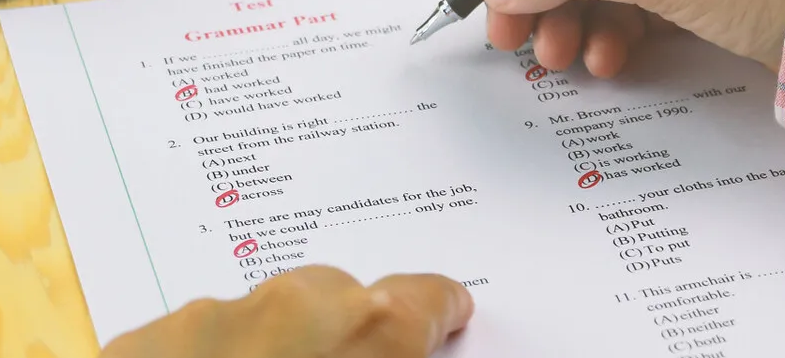 Test
Grammar Part
1. If we .................. all day, we might
have finished the paper on time.
(A) worked
(B) had worked
(C) have worked
(D) would have worked
2. Our building is right ................ the
street from the railway station.
(A) next
(B) under
(C) between
(D) across
3. There are may candidates for the job,
but we could .................. only one.
(A) choose
(B) chose
(C)
(C) in
(D) on
9. Mr. Brown ............. with our
company since 1990.
(A) work
(B) works
(C) is working
(D) has worked
10. ........ your cloths into the
bathroom.
(A) Put
(B) Putting
(C) To put
(D) Puts
11. This armchair is ......
comfortable.
(A) either
(B) neither
(C) both